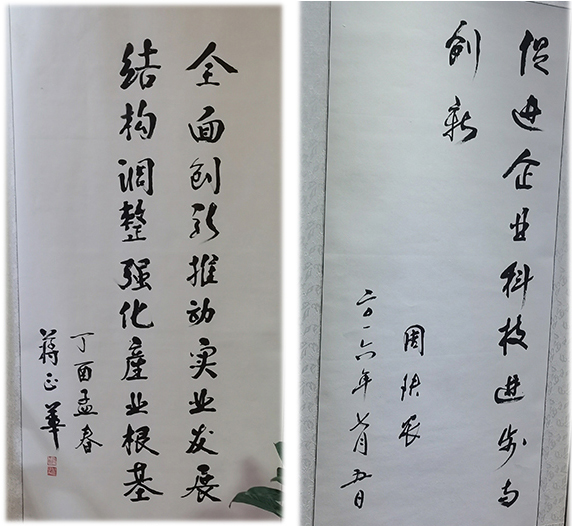 全面创新推动实业发展
结构调整强化產业根基
丁酉孟春
蒋正華
促进企业科技进步与
创新
周铁农
二〇一六年七月五日